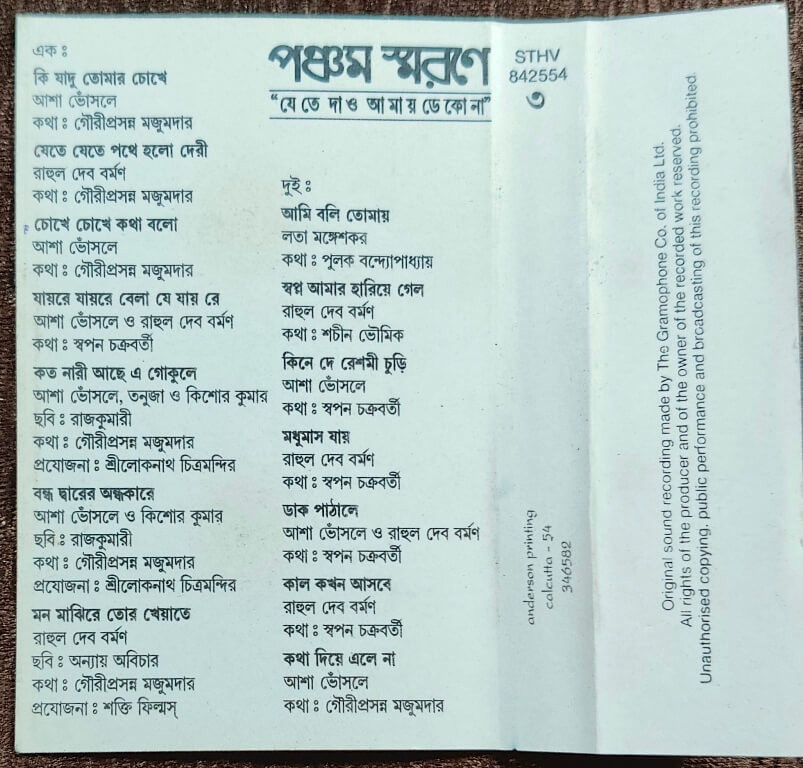 পঞ্চম স্মরণে
“যেতে দাও আমায় ডেকো না”
এক ঃ
কি যাদু তোমার চোখে
আশা ভোঁসলে
কথা ঃ গৌরীপ্রসন্ন মজুমদার
যেতে যেতে পথে হলো দেরী
রাহুল দেব বর্মণ
কথা ঃ গৌরীপ্রসন্ন মজুমদার
চোখে চোখে কথা বলো
আশা ভোঁসলে
কথা ঃ গৌরীপ্রসন্ন মজুমদার
যায়রে যায়রে বেলা যে যায় রে
আশা ভোঁসলে ও রাহুল দেব বর্মণ
কথা ঃ স্বপন চক্রবর্তী
কত নারী আছে এ গোকুলে
আশা ভোঁসলে, তনুজা ও কিশোর কুমার
ছবি ঃ রাজকুমারী
কথা ঃ গৌরীপ্রসন্ন মজুমদার
প্রযোজনা ঃ শ্রীলোকনাথ চিত্রমন্দির
বন্ধ দ্বারের অন্ধকারে
আশা ভোঁসলে ও কিশোর কুমার
ছবি ঃ রাজকুমারী
কথা ঃ গৌরীপ্রসন্ন মজুমদার
প্রযোজনা ঃ শ্রীলোকনাথ চিত্রমন্দির
মন মাঝিরে তোর খেয়াতে
রাহুল দেব বর্মণ
ছবি ঃ অন্যায় অবিচার
কথা ঃ গৌরীপ্রসন্ন মজুমদার
প্রযোজনা ঃ শক্তি ফিল্মস্
দুই ঃ
আমি বলি তোমায়
লতা মঙ্গেশকর
কথা ঃ পুলক বন্দ্যোপাধ্যায়
স্বপ্ন আমার হারিয়ে গেল
রাহুল দেব বর্মণ
কথা ঃ শচীন ভৌমিক
কিনে দে রেশমী চুড়ি
আশা ভোঁসলে
কথা ঃ স্বপন চক্রবর্তী
মধুমাস যায়
রাহুল দেব বর্মণ
কথা ঃ স্বপন চক্রবর্তী
ডাক পাঠালে
আশা ভোঁসলে ও রাহুল দেব বর্মণ
কথা ঃ স্বপন চক্রবর্তী
কাল কখন আসবে
রাহুল দেব বর্মণ
কথা ঃ স্বপন চক্রবর্তী
কথা দিয়ে এলে না
আশা ভোঁসলে
কথা ঃ গৌরীপ্রসন্ন মজুমদার
STHV
842554
৩
anderson printing
calcutta - 54
346582
Original sound recording made by The Gramophone Co. of India Ltd.
All rights of the producer and of the owner of the recorded work reserved.
Unauthorised copying, public performance and broadcasting of this recording prohibited.